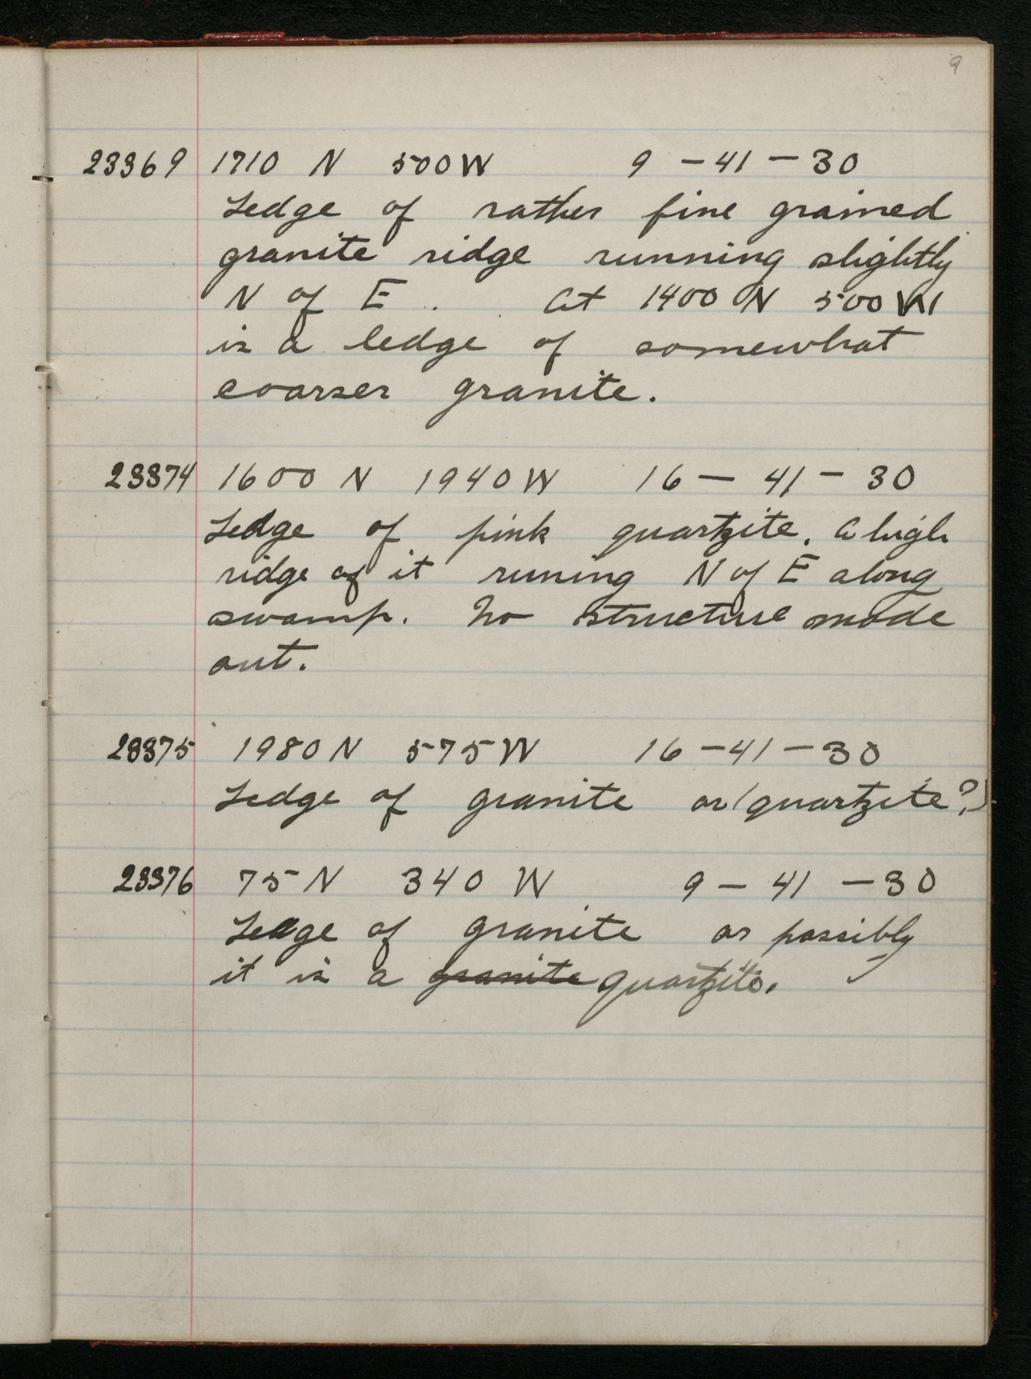 9
23369 1710 N 500 W 9 - 41 - 30
Ledge of rather fine grained
granite ridge running slightly
N of E. At 1400 N 500 W
is a ledge of somewhat
coarser granite.
23374 1600 N 1940 W 16 - 41 - 30
Ledge of pink quartzite. A high
ridge of it runing N of E along
swamp. No structure made
out.
23375 1980 N 575 W 16 - 41 - 30
Ledge of granite or (quartzite?)
23376 75 N 340 W 9 - 41 - 30
Ledge of granite or possibly
it is a granite quartzite.